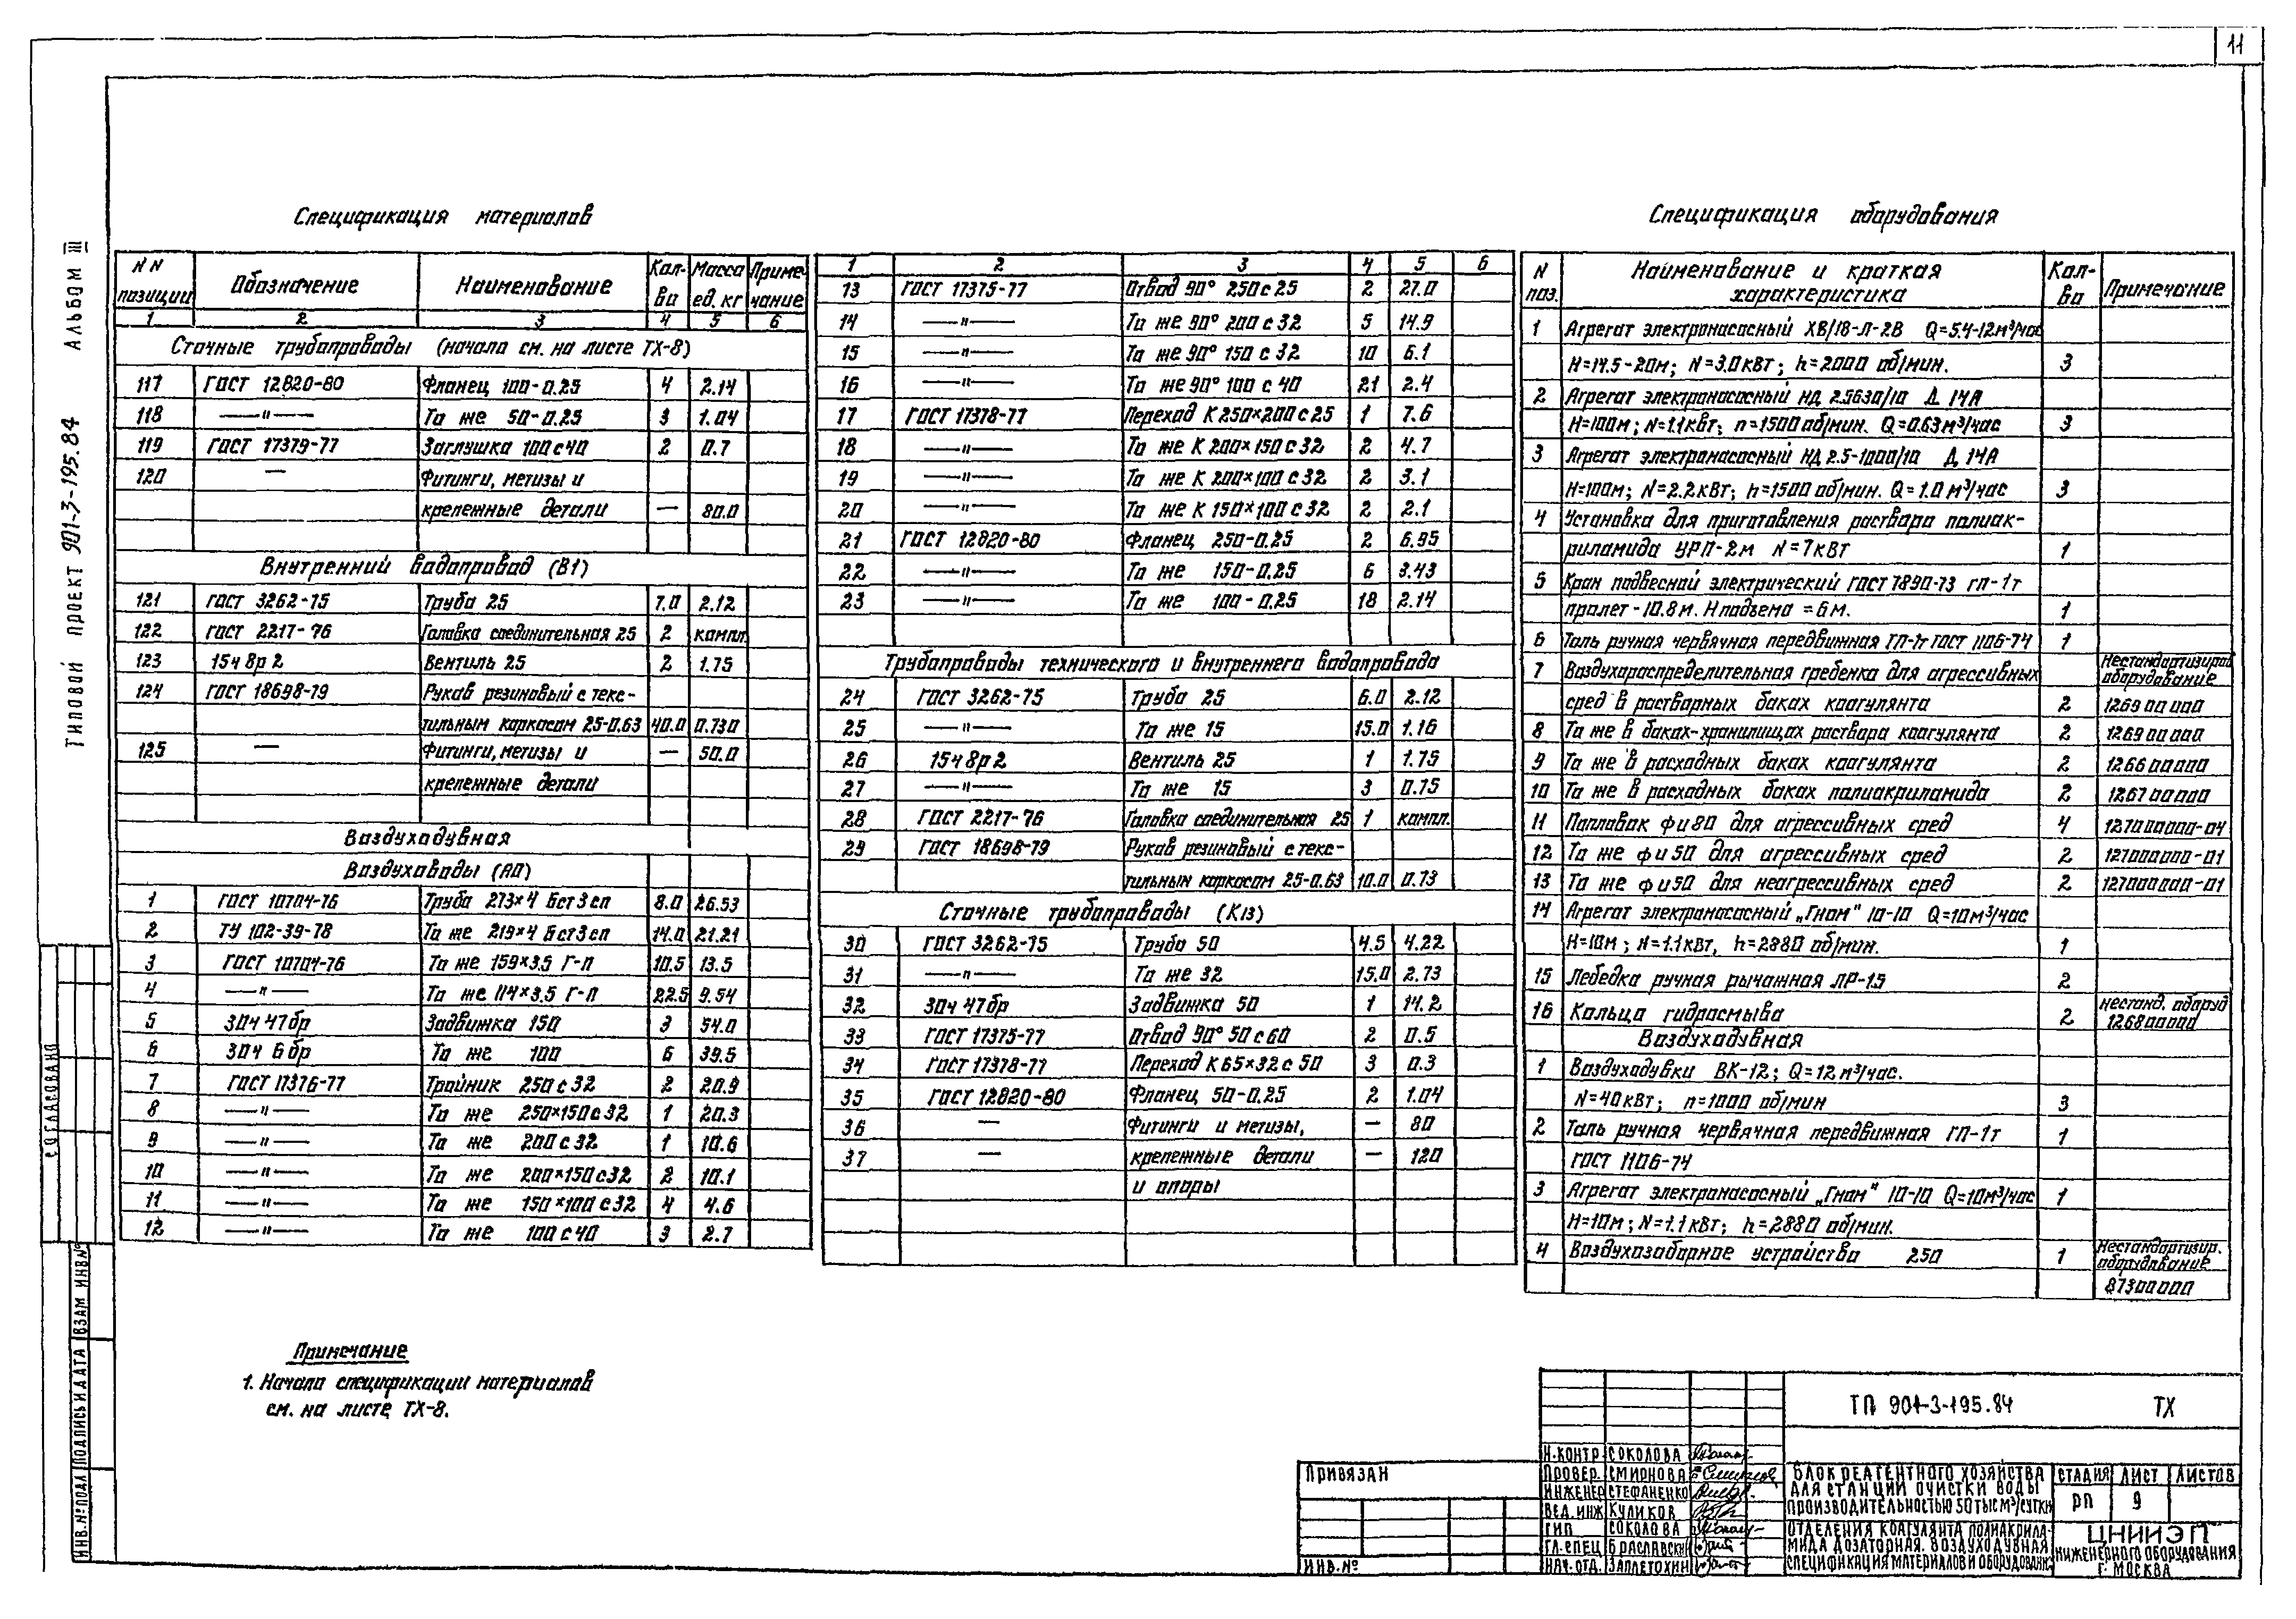 11
Типовой проект 901-3-195.84 Альбом III
Спецификация материалов
NN позиции Обозначение Наименование Кол-ва Масса ед. кг Примечание
1 2 3 4 5 6
Сточные трубопроводы (начало см. на листе ТХ-8)
117 ГОСТ 12820-80 Фланец 100-0.25 4 2.14
118 —"— То же 50-0.25 3 1.04
119 ГОСТ 17379-77 Заглушка 100с40 2 0.7
120 — Фитинги, метизы и
крепежные детали — 80.0
Внутренний водопровод (В1)
121 ГОСТ 3262-75 Труба 25 7.0 2.12
122 ГОСТ 2217-76 Головка соединительная 25 2 компл.
123 15ч 8р 2 Вентиль 25 2 1.75
124 ГОСТ 18698-79 Рукав резиновый с текс-
тильным каркасом 25-0.63 40.0 0.730
125 — Фитинги, метизы и — 50.0
крепежные детали
Воздуходувная
Воздуховоды (А0)
1 ГОСТ 10704-76 Труба 273×4 Бст3сп 8.0 26.53
2 ТУ 102-39-78 То же 219×4 Бст3сп 14.0 21.21
3 ГОСТ 10704-76 То же 159×3.5 Г-П 10.5 13.5
4 —"— То же 114×3.5 Г-П 22.5 9.54
5 30ч 47бр Задвижка 150 3 54.0
6 30ч 6бр То же 100 6 39.5
7 ГОСТ 17376-77 Тройник 250с32 2 20.9
8 —"— То же 250×150с32 1 20.3
9 —"— То же 200с32 1 10.6
10 —"— То же 200×150с32 2 10.1
11 —"— То же 150×100с32 4 4.6
12 —"— То же 100с40 3 2.7
1 2 3 4 5 6
13 ГОСТ 17375-77 Отвод 90° 250с25 2 27.0
14 —"— То же 90° 200с32 5 14.9
15 —"— То же 90° 150с32 10 6.1
16 —"— То же 90° 100с40 21 2.4
17 ГОСТ 17378-77 Переход К 250×200с25 1 7.6
18 —"— То же К 200×150с32 2 4.7
19 —"— То же К 200×100с32 2 3.1
20 —"— То же К 150×100с32 2 2.1
21 ГОСТ 12820-80 Фланец 250-0.25 2 6.95
22 —"— То же 150-0.25 6 3.43
23 —"— То же 100-0.25 18 2.14
Трубопроводы технического и внутреннего водопровода
24 ГОСТ 3262-75 Труба 25 6.0 2.12
25 —"— То же 15 15.0 1.16
26 15ч 8р2 Вентиль 25 1 1.75
27 —"— То же 15 3 0.75
28 ГОСТ 2217-76 Головка соединительная 25 1 компл.
29 ГОСТ 18698-79 Рукав резиновый с текс-
тильным каркасом 25-0.63 10.0 0.73
Сточные трубопроводы (К13)
30 ГОСТ 3262-75 Труба 50 4.5 4.22
31 —"— То же 32 15.0 2.73
32 30ч 47бр Задвижка 50 1 14.2
33 ГОСТ 17375-77 Отвод 90° 50с60 2 0.5
34 ГОСТ 17378-77 Переход К 65×32с50 3 0.3
35 ГОСТ 12820-80 Фланец 50-0.25 2 1.04
36 — Фитинги и метизы, — 80
37 — крепежные детали — 120
и опоры
Спецификация оборудования
N поз. Наименование и краткая характеристика Кол-ва Примечание
1 Агрегат электронасосный ХВ/18-Л-2В Q=5.4-12м³/час
Н=14.5-20м; N=3.0кВт; h=2000 об/мин. 3
2 Агрегат электронасосный НД 2.5630/10 Д 14А
Н=100м; N=1.1кВт; n=1500 об/мин. Q=0.63м³/час 3
3 Агрегат электронасосный НД 2.5-1000/10 Д 14А
Н=100м; N=2.2кВт; h=1500 об/мин. Q=1.0м³/час 3
4 Установка для приготовления раствора полиак-
риламида УРП-2м N=7кВт 1
5 Кран подвесной электрический ГОСТ 7890-73 гп-1т
пролет-10.8м. Н подъема=6м. 1
6 Таль ручная червячная передвижная ГП-1т ГОСТ 1106-74 1
7 Воздухораспределительная гребенка для агрессивных Нестандартизиров. оборудование
сред в растворных баках коагулянта 2 1269 00 000
8 То же в баках-хранилищах раствора коагулянта 2 1269 00 000
9 То же в расходных баках коагулянта 2 1266 00 000
10 То же в расходных баках полиакриламида 2 1267 00 000
11 Поплавок фи80 для агрессивных сред 4 1270 00 000-04
12 То же фи50 для агрессивных сред 2 1270 00 000-01
13 То же фи50 для неагрессивных сред 2 1270 00 000-01
14 Агрегат электронасосный „Гном" 10-10 Q=10м³/час
Н=10м; N=1.1кВт, h=2880 об/мин. 1
15 Лебедка ручная рычажная ЛР-1.5 2
16 Кольцо гидросмыва 2 нестанд. оборуд 1268 00 000
Воздуходувная
1 Воздуходувки ВК-12; Q=12м³/час.
N=40кВт; n=1000 об/мин 3
2 Таль ручная червячная передвижная ГП-1т 1
ГОСТ 1106-74
3 Агрегат электронасосный „Гном" 10-10 Q=10м³/час 1
Н=10м; N=1.1кВт; h=2880 об/мин.
4 Воздухозаборное устройство 250 1 Нестандартизир. оборудование
873 00 000
Примечание
1. Начало спецификации материалов
см. на листе ТХ-8.
СОГЛАСОВАНО
ВЗАМ ИНВ№
ПОДПИСЬ И ДАТА
ИНВ.№ПОДЛ
ПРИВЯЗАН
ИНВ.№
ТП 901-3-195.84 ТХ
Н.КОНТР СОКОЛОВА
ПРОВЕР. СМИРНОВА
ИНЖЕНЕР СТЕФАНЕНКО
ВЕД.ИНЖ КУЛИКОВ
ГИП СОКОЛОВА
ГЛ.СПЕЦ БРАСЛАВСКИЙ
НАЧ.ОТД. ЗАПЛЕТОХИН
БЛОК РЕАГЕНТНОГО ХОЗЯЙСТВА
ДЛЯ СТАНЦИИ ОЧИСТКИ ВОДЫ
ПРОИЗВОДИТЕЛЬНОСТЬЮ 50 ТЫС М³/СУТКИ
СТАДИЯ ЛИСТ ЛИСТОВ
РП 9
ОТДЕЛЕНИЯ КОАГУЛЯНТА ПОЛИАКРИЛА-
МИДА ДОЗАТОРНАЯ. ВОЗДУХОДУВНАЯ
СПЕЦИФИКАЦИЯ МАТЕРИАЛОВ И ОБОРУДОВАНИЯ
ЦНИИЭП
ИНЖЕНЕРНОГО ОБОРУДОВАНИЯ
Г. МОСКВА